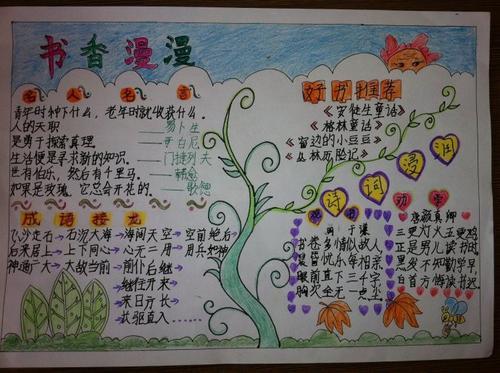 书香漫漫
名人名言
青年时种下什么,老年时就收获什么。
——易卜生
人的天职是勇于探索真理。
——哥白尼
生活便是寻求新的知识。
——门捷列夫
世有伯乐,然后有千里马。
——韩愈
如果是玫瑰,它总会开花的。
——歌德
好书推荐
《安徒生童话》
《格林童话》
《窗边的小豆豆》
《丛林历险记》
诗词浸润
成语接龙
飞沙走石→石沉大海→海阔天空→空前绝后
后来居上→上下同心→心无二用→用兵如神
神通广大→大敌当前→前仆后继
继往开来
来日方长
长驱直入
观书
于谦
书卷多情似故人,
晨昏忧乐每相亲。
眼前直下三千字,
胸次全无一点尘。
劝学
唐 颜真卿
三更灯火五更鸡
正是男儿读书时
黑发不知勤学早,
白首方悔读书迟。